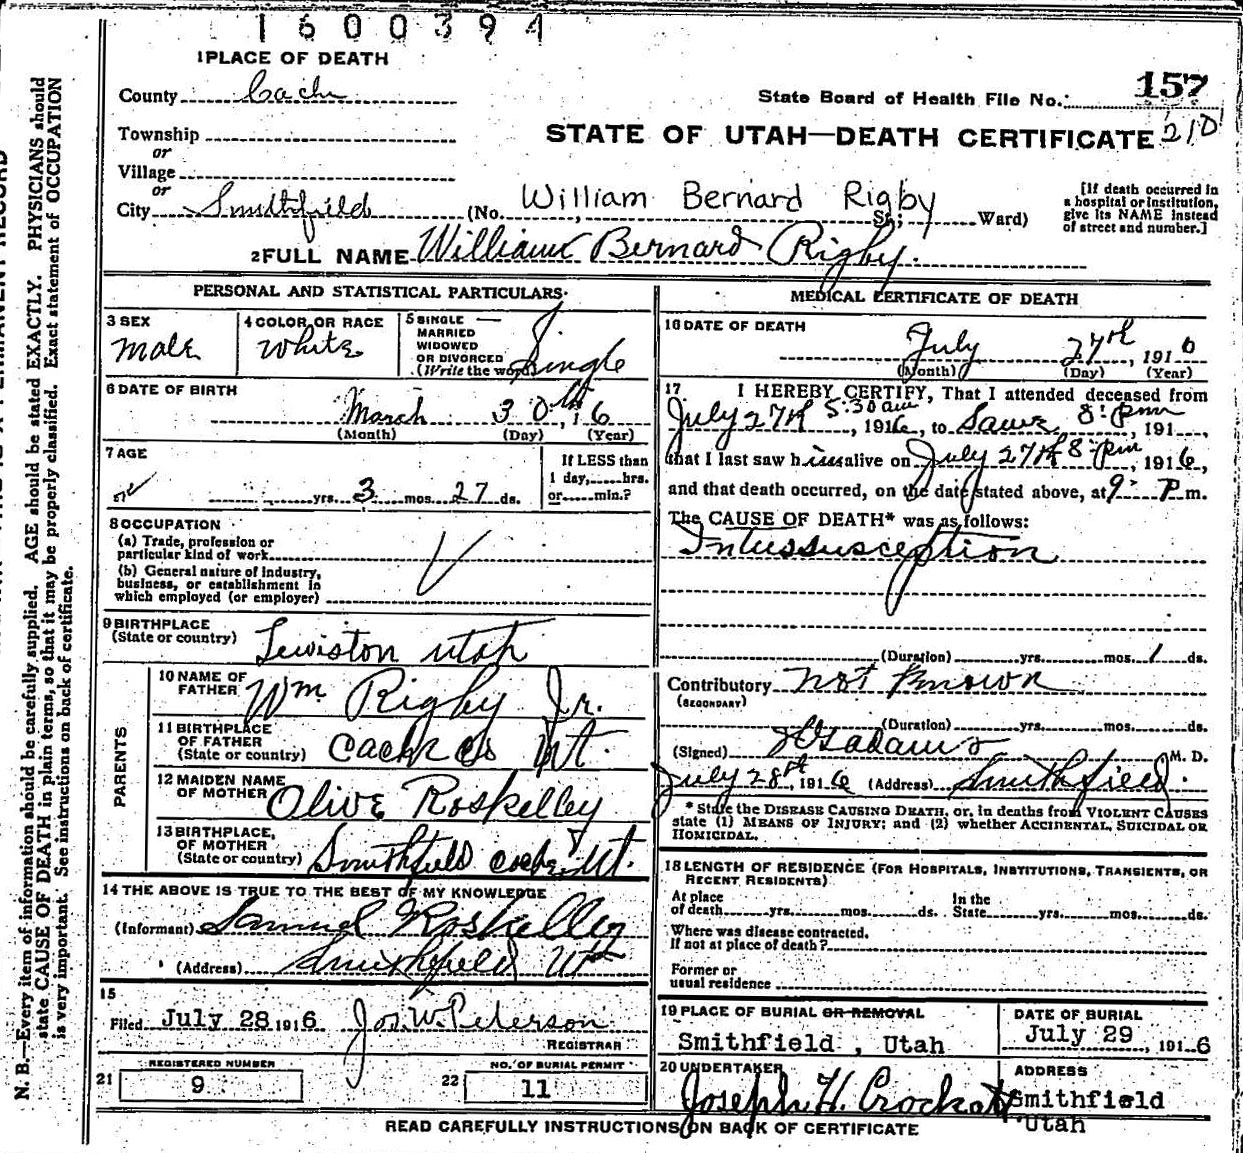 1600394
1 PLACE OF DEATH
County Cache
State Board of Health File No. 157
210
Township
or
Village
or
STATE OF UTAH—DEATH CERTIFICATE
City Smithfield (No. William Bernard Rigby St.; Ward)
[If death occurred in
a hospital or institution,
give its NAME instead
of street and number.]
2 FULL NAME William Bernard Rigby.
PERSONAL AND STATISTICAL PARTICULARS
3 SEX
Male
4 COLOR OR RACE
White
5 SINGLE
MARRIED
WIDOWED
OR DIVORCED
(Write the word) Single
6 DATE OF BIRTH
March 30th, 16
(Month) (Day) (Year)
7 AGE
yrs. 3 mos. 27 ds.
If LESS than
1 day, hrs.
or min.?
8 OCCUPATION
(a) Trade, profession or
particular kind of work
(b) General nature of industry,
business, or establishment in
which employed (or employer)
9 BIRTHPLACE
(State or country) Lewiston Utah
PARENTS
10 NAME OF
FATHER Wm Rigby Jr.
11 BIRTHPLACE
OF FATHER
(State or country) Cache Co Ut.
12 MAIDEN NAME
OF MOTHER Olive Roskelley
13 BIRTHPLACE,
OF MOTHER
(State or country) Smithfield Cache, Ut.
14 THE ABOVE IS TRUE TO THE BEST OF MY KNOWLEDGE
(Informant) Samuel Roskelley
(Address) Smithfield Ut
15
Filed July 28 1916 Jos. W. Peterson
REGISTRAR
REGISTERED NUMBER
21 9
NO. OF BURIAL PERMIT
22 11
MEDICAL CERTIFICATE OF DEATH
16 DATE OF DEATH
July 27th, 1916
(Month) (Day) (Year)
17 I HEREBY CERTIFY, That I attended deceased from
July 27th 5:30 am, 1916, to Same 8: pm, 191
that I last saw him alive on July 27th 8: pm, 1916,
and that death occurred, on the date stated above, at 9: P m.
The CAUSE OF DEATH* was as follows:
Intussusception
(Duration) yrs. mos. 1 ds.
Contributory not known
(SECONDARY)
(Duration) yrs. mos. ds.
(Signed) Adams M. D.
July 28th, 1916 (Address) Smithfield.
* State the DISEASE CAUSING DEATH, or, in deaths from VIOLENT CAUSES
state (1) MEANS OF INJURY; and (2) whether ACCIDENTAL, SUICIDAL OR
HOMICIDAL.
18 LENGTH OF RESIDENCE (FOR HOSPITALS, INSTITUTIONS, TRANSIENTS, OR
RECENT RESIDENTS)
At place
of death yrs. mos. ds.
In the
State yrs. mos. ds.
Where was disease contracted.
If not at place of death?
Former or
usual residence
19 PLACE OF BURIAL OR REMOVAL
Smithfield, Utah
DATE OF BURIAL
July 29, 1916
20 UNDERTAKER
Joseph H. Crockatt
ADDRESS
Smithfield
Utah
READ CAREFULLY INSTRUCTIONS ON BACK OF CERTIFICATE
N. B.—Every item of information should be carefully supplied. AGE should be stated EXACTLY. PHYSICIANS should
state CAUSE OF DEATH in plain terms, so that it may be properly classified. Exact statement of OCCUPATION
is very important. See instructions on back of certificate.